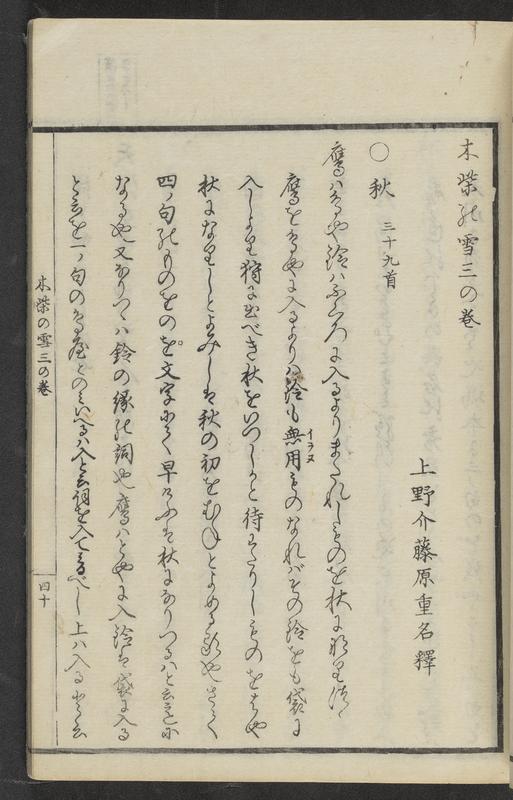 木柴能雪三の巻
上野介藤原重名釋
○秋 三十九首
鷹ハとや鈴ハふくろに入るよりまたれしものを秋に
鷹をとやに入るよりハ鈴も無用ものなれバその鈴をも袋に
イラヌ
入しより狩に出べき秋をいつしかと待をりしものをはや
秋になりしとよみしは秋の初をむねとよめる歌也さて
四ノ句能ものをのを文字にて早けふは秋になりつるハと云意に
なる也又なりつハ鈴の縁能詞也鷹ハとやに入鈴は袋に入る
と云を一ノ句のとやとのミいへるハ入と云詞を入て見るべし上ハ入るにて云
木柴の雪三の巻
四十